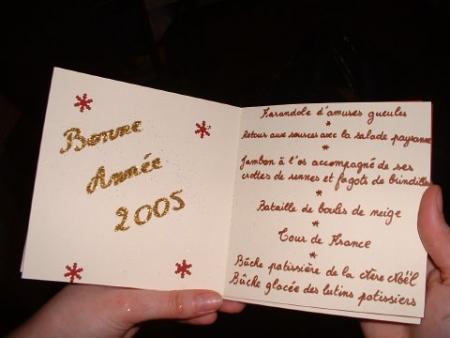 Bonne
Année
2005
Farandole d'amuses gueules
*
Retour aux sources avec la salade paysanne
*
Jambon à l'os accompagné de ses
crottes de rennes et fagots de brindilles
*
Bataille de boules de neige
*
Tour de France
*
Bûche patissière de la Mère Noël
Bûche glacée des lutins patissiers